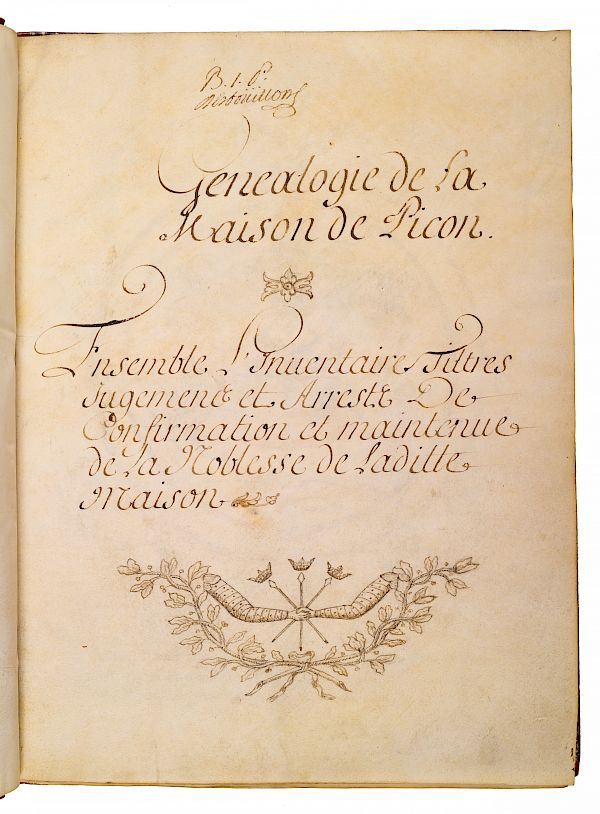 B. 1. 6º.
Desboüillons
Genealogie de La
Maison de Picon.
Ensemble L'Inuentaire, Tiltres
Jugements et Arrests De
Confirmation et maintenue
de La Noblesse de Laditte
Maison